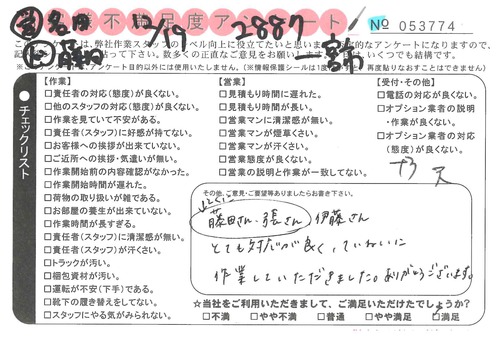 お客様不満足度アンケート
№ 053774
12/19 2887
一宮市
弊社作業スタッフのレベル向上に役立てたいと思いま
数多くの正直なご意見をお願いし
アンケート目的以外には使用いたしません。(※情報保護シールは1度
再度貼りなおすことはできません)
チェックリスト
【作業】
□責任者の対応(態度)が良くない。
□他のスタッフの対応(態度)が良くない。
□作業を見ていて不安がある。
□責任者(スタッフ)に好感が持てない。
□お客様への挨拶が出来ていない。
□ご近所への挨拶・気遣いが無い。
□作業開始前の内容確認がなかった。
□作業開始時間が遅れた。
□荷物の取り扱いが雑である。
□お部屋の養生が出来ていない。
□作業時間が長すぎる。
□責任者(スタッフ)に清潔感が無い。
□責任者(スタッフ)が汗くさい。
□トラックが汚い。
□梱包資材が汚い。
□運転が不安(下手)である。
□靴下の履き替えをしてない。
□スタッフにやる気がみられない。
【営業】
□見積もり時間に遅れた。
□見積もり時間が長い。
□営業マンに清潔感が無い。
□営業マンが煙草くさい。
□営業マンが汗くさい。
□営業態度が良くない。
□営業の説明と作業が一致してない。
【受付・その他】
□電話の対応が良くない。
□オプション業者の説明
・作業が良くない。
□オプション業者の対応
(態度)が良くない。
その他、ご意見・ご要望等ありましたらお書き下さい。
とくに
藤田さん、張さん 伊藤さん
とても対応が良くていねいに
作業していただきました。ありがとうございます。
☆当社をご利用いただきまして、ご満足いただけたでしょうか?
□不満 □やや不満 □普通 □やや満足 □満足